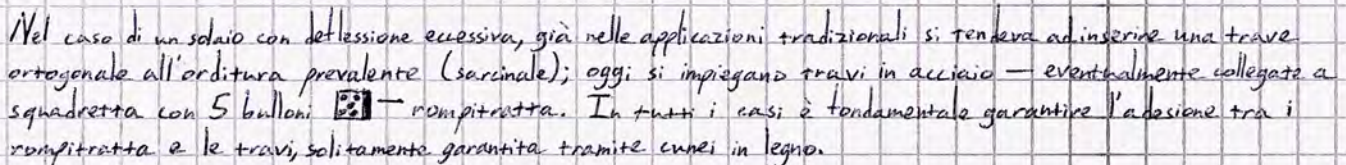 Nel caso di un solaio con deflessione eccessiva, già nelle applicazioni tradizionali si tendeva ad inserire una trave
ortogonale all'orditura prevalente (sarcinale); oggi si impiegano travi in acciaio — eventualmente collegate a
squadretta con 5 bulloni — rompitratta. In tutti i casi è fondamentale garantire l'adesione tra i
rompitratta e le travi, solitamente garantita tramite cunei in legno.